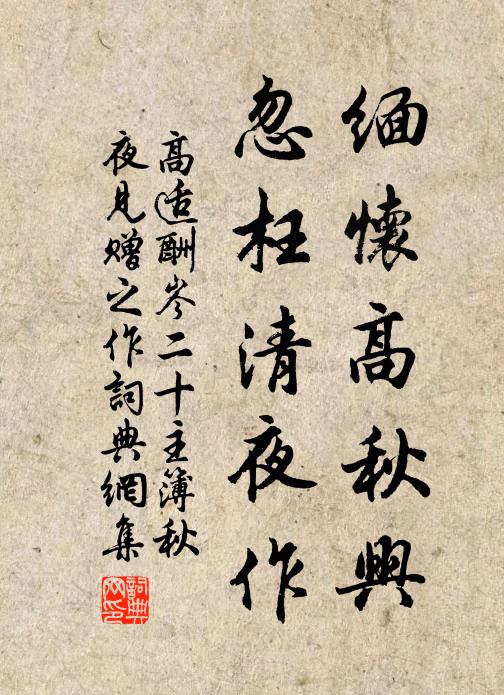 緬懷高秋興
忽枉清夜作
高适酬岑二十主簿秋
夜見贈之作詞典網集
詞典網印